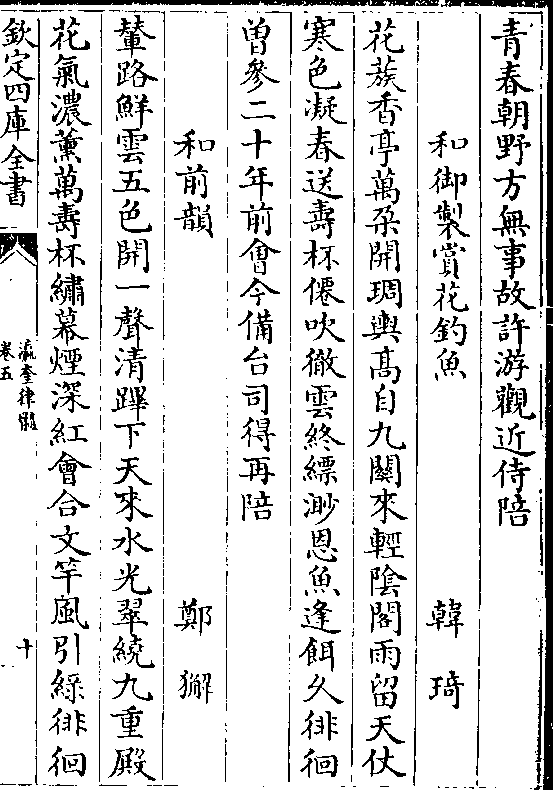 青春朝野方無事故許游觀近侍陪
和御製賞花釣魚　韓琦
花蔟香亭萬朶開琱輿髙自九闗來輕陰閣雨留天仗
寒色凝春送壽杯僊吹徹雲終縹渺恩魚逢餌久徘徊
曽參二十年前㑹今備台司得再陪
和前韻　鄭獬
輦路鮮雲五色開一聲清蹕下天來水光翠繞九重殿
花氣濃薰萬壽杯繡幕煙深紅㑹合文竿風引綠徘徊
欽定四庫全書
瀛奎律髓
卷五
十